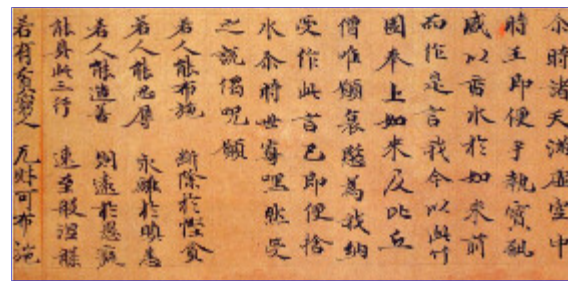 尒時諸天滿虛空中
時王即便手執寶瓶
盛以香水於如来前
而作是言我今以此竹
園奉上如来及比丘
僧唯願哀愍為我納
受作此言已即便捨
水尒時世尊嘿然受
之說偈呪願
若人能布施 斷除於慳貪
若人能忍辱 永離於瞋恚
若人能造善 則遠於愚癡
能具此三行 速至般涅槃
若有貧窮人 无財可布施